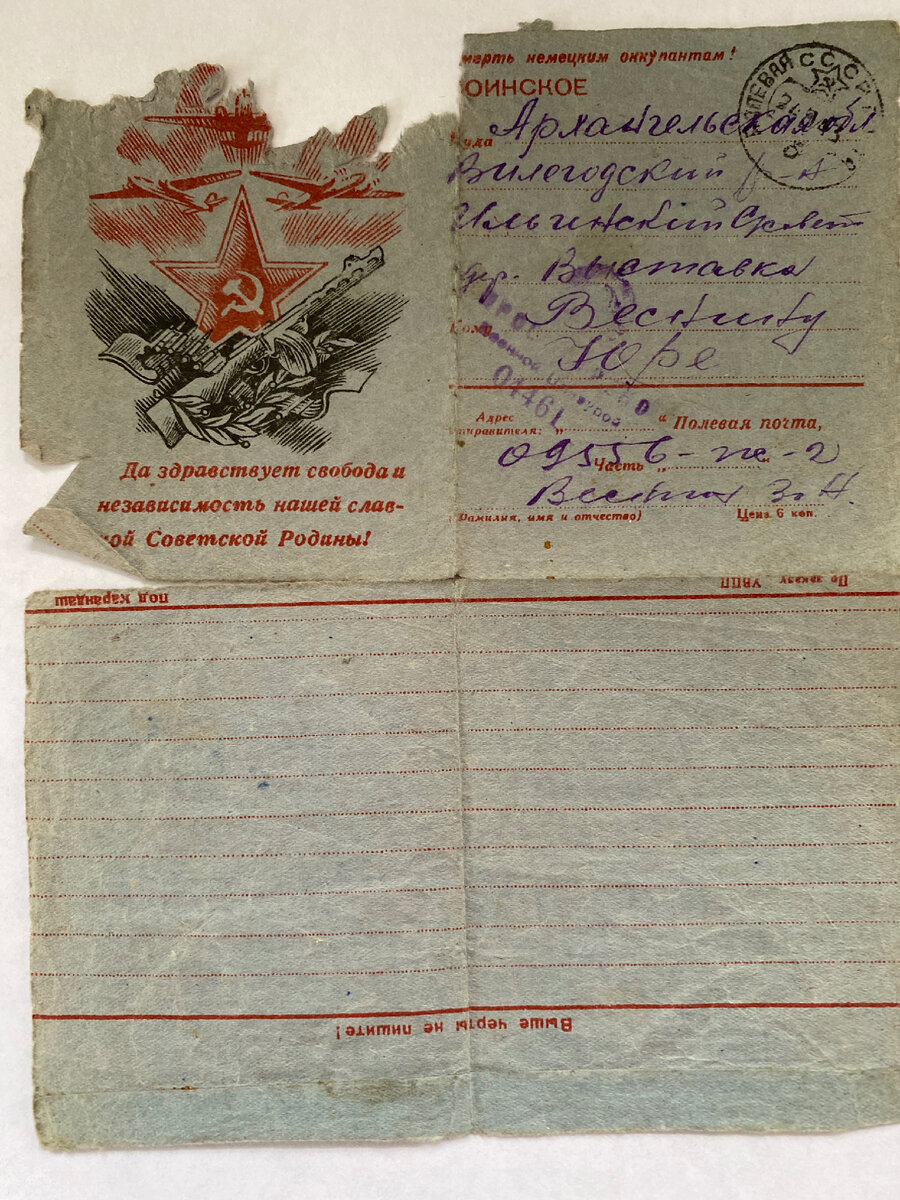 Да здравствует свобода и
независимость нашей слав-
ной Советской Родины!
мерть немецким оккупантам!
ОИНСКОЕ
уда Архангельская обл.
Вилегодский р-н
Ильинский Совет
дер. Выставка
Кому Веснину
Юре
ПОЛЕВАЯ
СССР
01461
Адрес
правителя: „ “ Полевая почта,
09556-ж-2
Часть „ “
Веснин З. Н.
Фамилия, имя и отчество) Цена 6 коп.
По заказу УВПП
под карандаш
Выше черты не пишите!